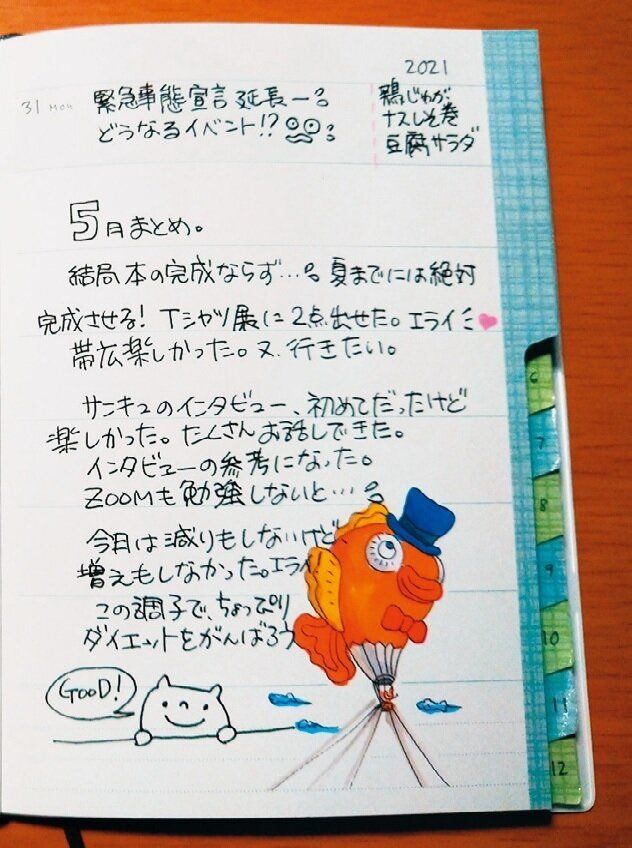 2021
31 MON
緊急事態宣言延長ー
どうなるイベント!?
鶏じゃが
ナスしそ巻
豆腐サラダ
5月まとめ。
結局本の完成ならず…。夏までには絶対
完成させる! Tシャツ展に2点出せた。エライ
帯広楽しかった。又、行きたい。
サンキュのインタビュー、初めてだったけど
楽しかった。たくさんお話しできた。
インタビューの参考になった。
ZOOMも勉強しないと…
今月は減りもしないけど
増えもしなかった。エライ!
この調子で、ちょっぴり
ダイエットをがんばろう
GOOD!
6
7
8
9
10
11
12